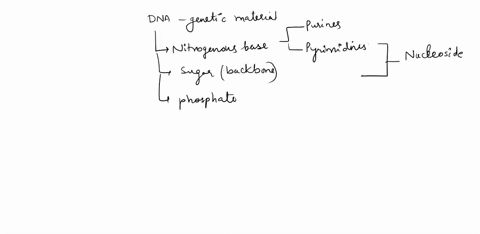 DNA - genetic material
Purines
Nitrogenous base
Pyrimidines
Nucleoside
Sugar (backbone)
phosphate